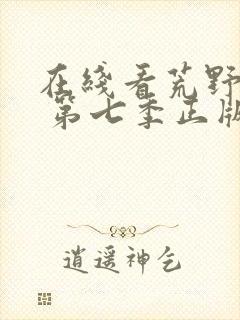 在綫看荒野
第七季正版
逍遥神乞